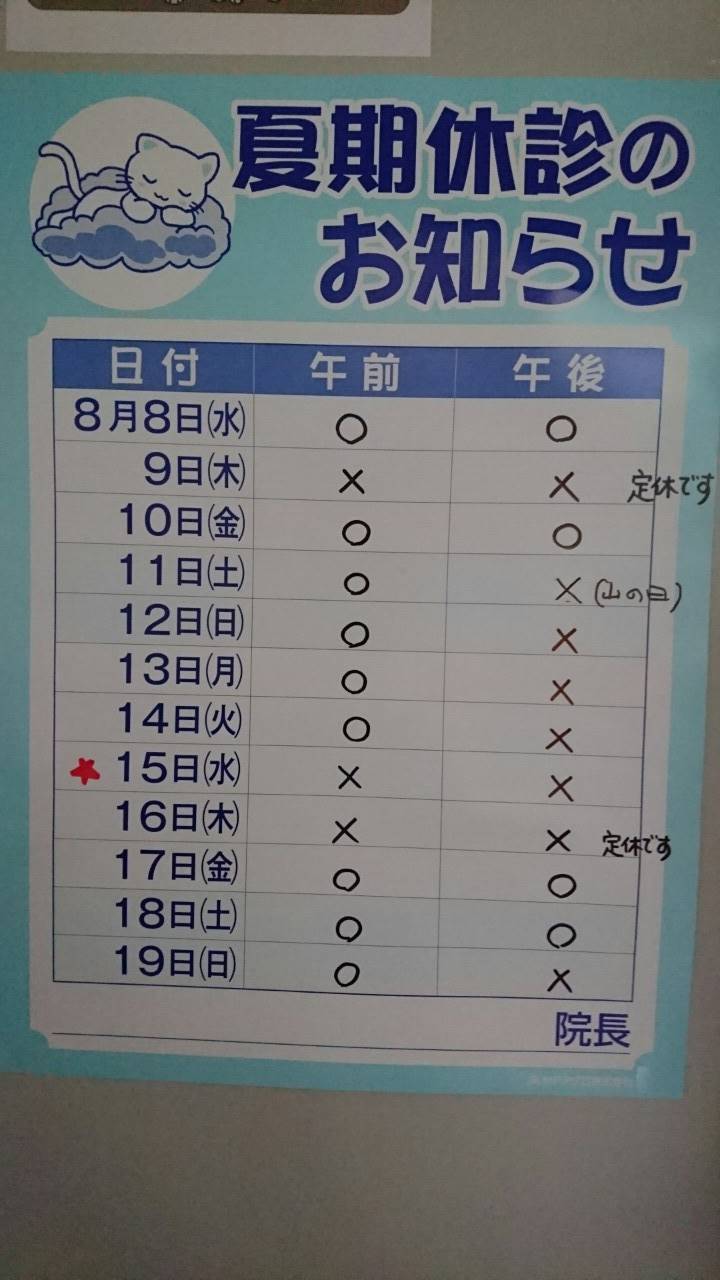 夏期休診の
お知らせ
日付 午前 午後
8月8日(水) ○ ○
9日(木) × × 定休です
10日(金) ○ ○
11日(土) ○ × (山の日)
12日(日) ○ ×
13日(月) ○ ×
14日(火) ○ ×
★ 15日(水) × ×
16日(木) × × 定休です
17日(金) ○ ○
18日(土) ○ ○
19日(日) ○ ×
院長